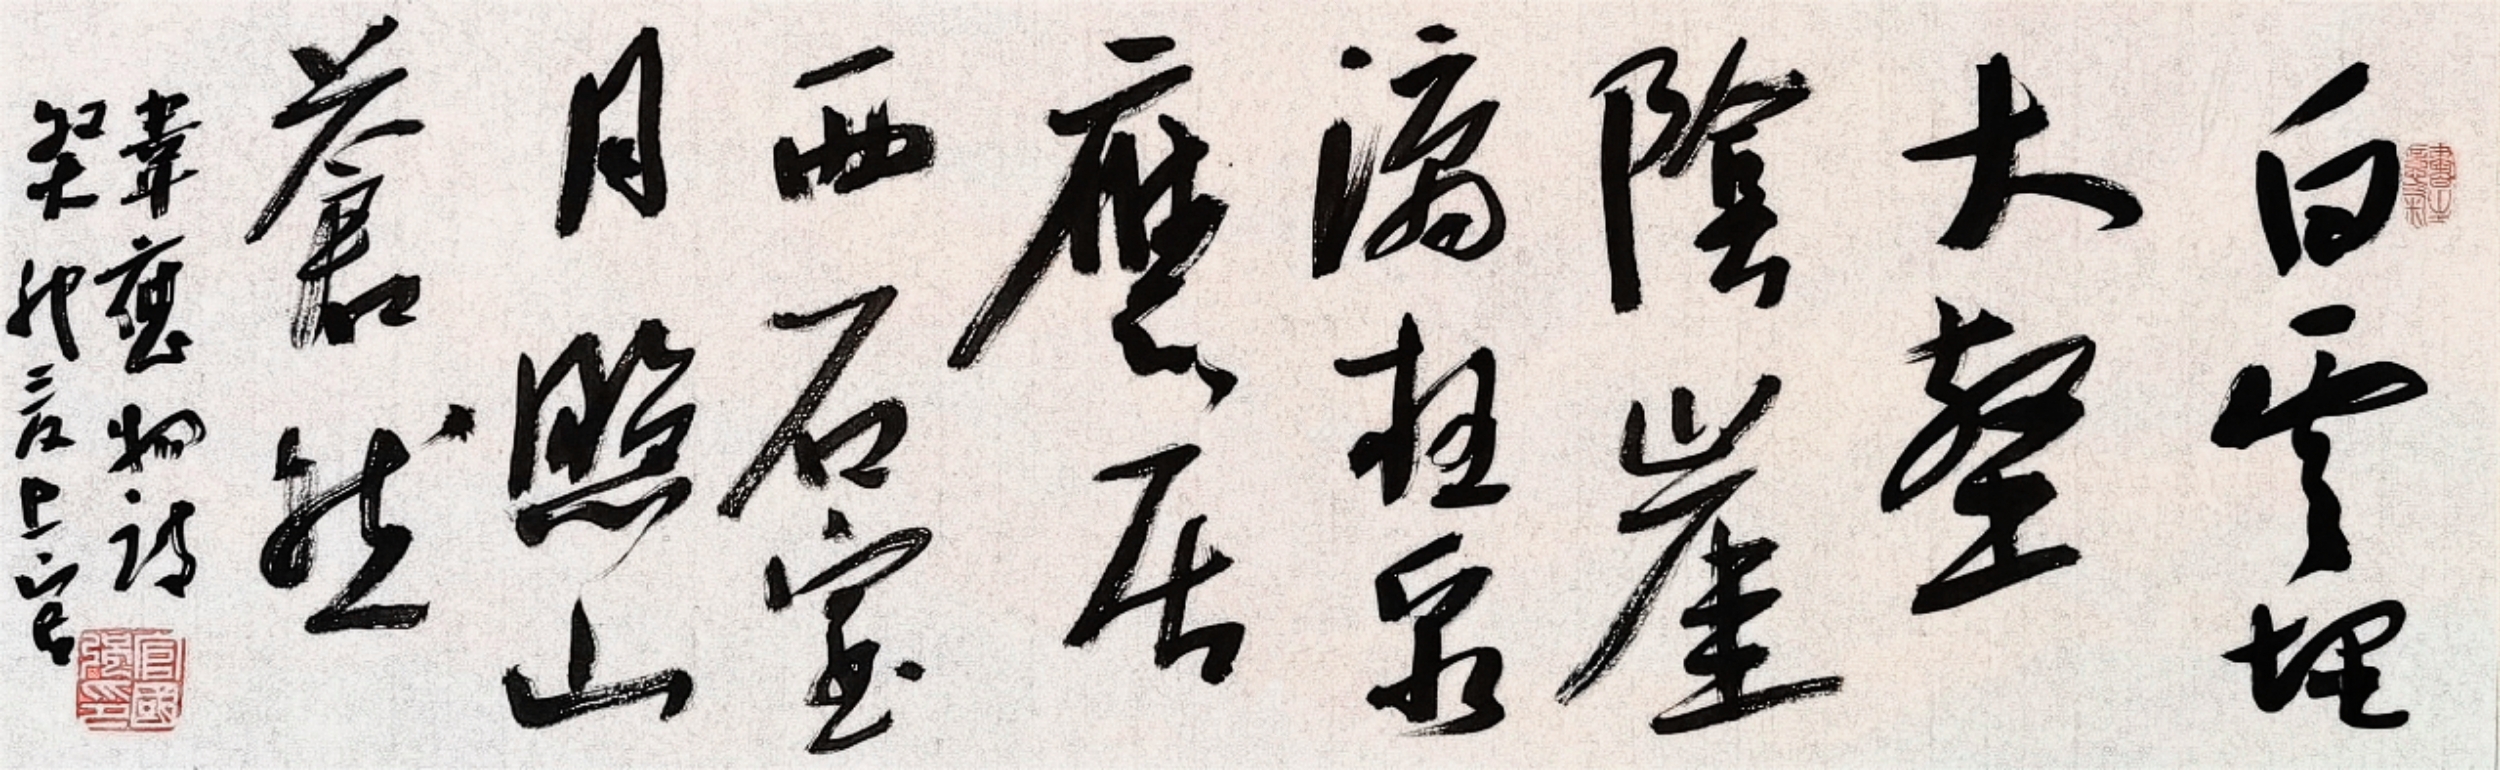 白雲埋
大壑
陰崖
滴夜泉
應居
西石室
月照山
蒼然
韋應物詩
癸卯
官國強印